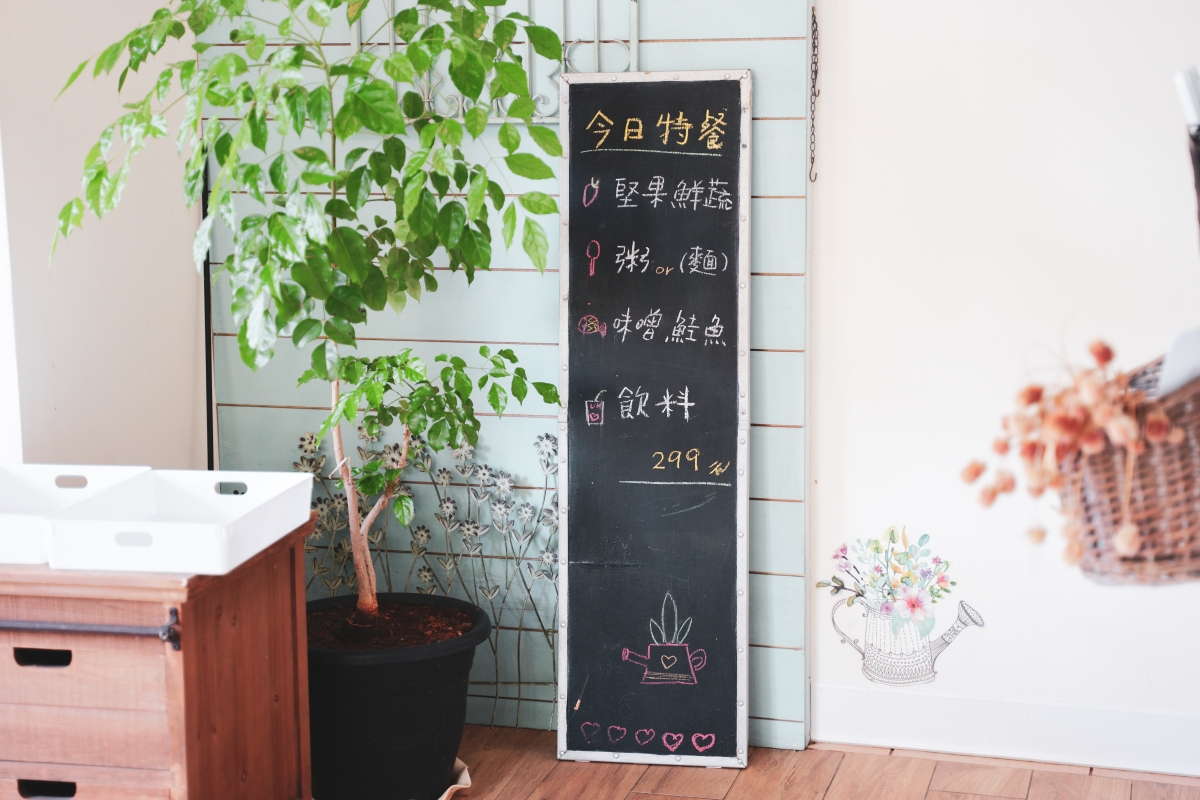 今日特餐
堅果鮮蔬
粥or(麵)
味噌鮭魚
飲料
299元